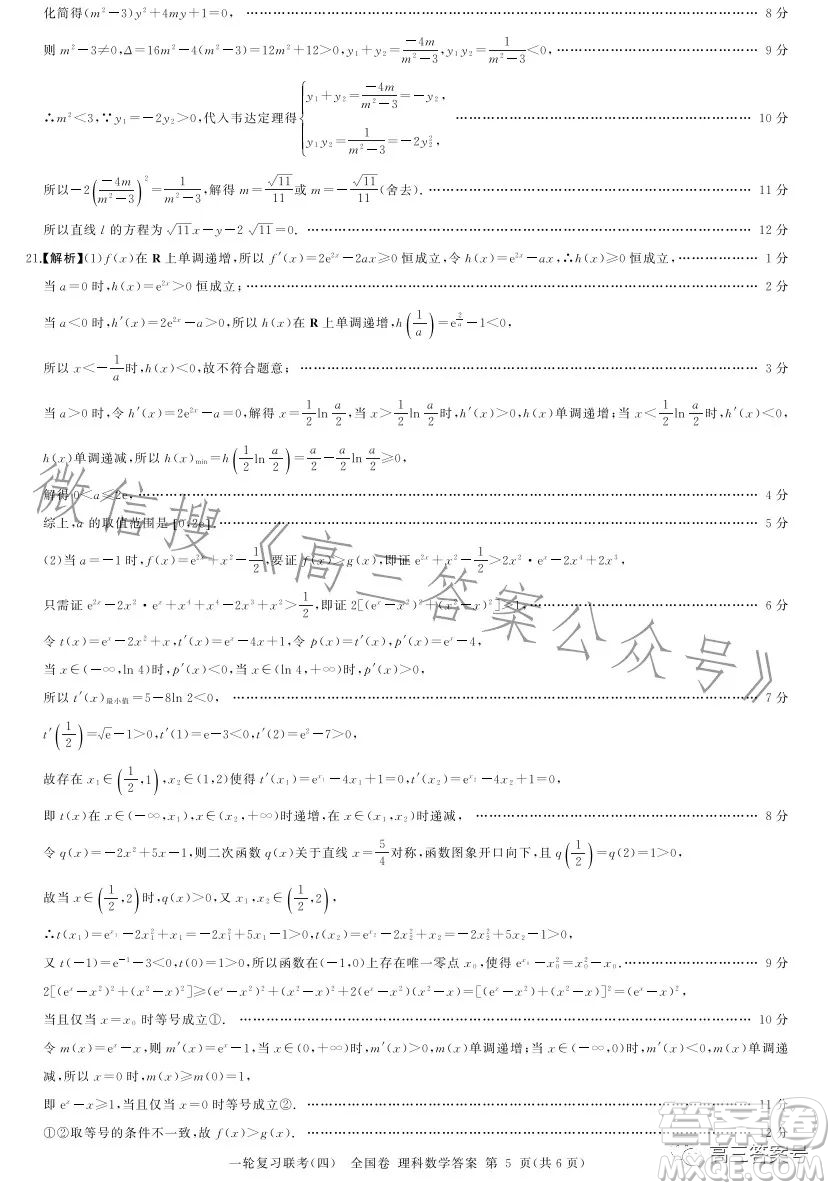 化简得(m²-3)y²+4my+1=0, …… 8 分
则 m²-3≠0,Δ=16m²-4(m²-3)=12m²+12>0,y₁+y₂=\frac{-4m}{m²-3},y₁y₂=\frac{1}{m²-3}<0, …… 9 分
∴m²<3,∵y₁=-2y₂>0,代入韦达定理得{y₁+y₂=\frac{-4m}{m²-3}=-y₂, y₁y₂=\frac{1}{m²-3}=-2y₂², …… 10 分
所以-2(\frac{-4m}{m²-3})²=\frac{1}{m²-3},解得 m=\frac{√11}{11}或 m=-\frac{√11}{11}(舍去). …… 11 分
所以直线 l 的方程为√11x-y-2√11=0. …… 12 分
21.【解析】(1)f(x)在 R 上单调递增,所以 f′(x)=2e²ˣ-2ax≥0 恒成立,令 h(x)=e²ˣ-ax,∴h(x)≥0 恒成立, …… 1 分
当 a=0 时,h(x)=e²ˣ>0 恒成立; …… 2 分
当 a<0 时,h′(x)=2e²ˣ-a>0,所以 h(x)在 R 上单调递增,h(\frac{1}{a})=e^{\frac{2}{a}}-1<0,
所以 x<-\frac{1}{a}时,h(x)<0,故不符合题意; …… 3 分
当 a>0 时,令 h′(x)=2e²ˣ-a=0,解得 x=\frac{1}{2}ln\frac{a}{2},当 x>\frac{1}{2}ln\frac{a}{2}时,h′(x)>0,h(x)单调递增;当 x<\frac{1}{2}ln\frac{a}{2}时,h′(x)<0,
h(x)单调递减,所以 h(x)min=h(\frac{1}{2}ln\frac{a}{2})=\frac{a}{2}-\frac{a}{2}ln\frac{a}{2}≥0,
解得 0<a≤2e, …… 4 分
综上,a 的取值范围是[0,2e]. …… 5 分
(2)当 a=-1 时,f(x)=e²ˣ+x²-\frac{1}{2},要证 f(x)>g(x),即证 e²ˣ+x²-\frac{1}{2}>2x²·eˣ-2x⁴+2x³,
只需证 e²ˣ-2x²·eˣ+x⁴+x⁴-2x³+x²>\frac{1}{2},即证 2[(eˣ-x²)²+(x²-x)²]<1, …… 6 分
令 t(x)=eˣ-2x²+x,t′(x)=eˣ-4x+1,令 p(x)=t′(x),p′(x)=eˣ-4,
当 x∈(-∞,ln 4)时,p′(x)<0,当 x∈(ln 4,+∞)时,p′(x)>0,
所以 t′(x)最小值=5-8ln 2<0, …… 7 分
t′(\frac{1}{2})=√e-1>0,t′(1)=e-3<0,t′(2)=e²-7>0,
故存在 x₁∈(\frac{1}{2},1),x₂∈(1,2)使得 t′(x₁)=e^{x₁}-4x₁+1=0,t′(x₂)=e^{x₂}-4x₂+1=0,
即 t(x)在 x∈(-∞,x₁),x∈(x₂,+∞)时递增,在 x∈(x₁,x₂)时递减, …… 8 分
令 q(x)=-2x²+5x-1,则二次函数 q(x)关于直线 x=\frac{5}{4}对称,函数图象开口向下,且 q(\frac{1}{2})=q(2)=1>0,
故当 x∈(\frac{1}{2},2)时,q(x)>0,又 x₁,x₂∈(\frac{1}{2},2),
∴t(x₁)=e^{x₁}-2x₁²+x₁=-2x₁²+5x₁-1>0,t(x₂)=e^{x₂}-2x₂²+x₂=-2x₂²+5x₂-1>0,
又 t(-1)=e⁻¹-3<0,t(0)=1>0,所以函数在(-1,0)上存在唯一零点 x₀,使得 e^{x₀}-x₀²=x₀²-x₀. …… 9 分
2[(eˣ-x²)²+(x²-x)²]≥(eˣ-x²)²+(x²-x)²+2(eˣ-x²)(x²-x)=[(eˣ-x²)+(x²-x)]²=(eˣ-x)²,
当且仅当 x=x₀ 时等号成立①. …… 10 分
令 m(x)=eˣ-x,则 m′(x)=eˣ-1,当 x∈(0,+∞)时,m′(x)>0,m(x)单调递增;当 x∈(-∞,0)时,m′(x)<0,m(x)单调递
减,所以 x=0 时,m(x)≥m(0)=1,
即 eˣ-x≥1,当且仅当 x=0 时等号成立②. …… 11 分
①②取等号的条件不一致,故 f(x)>g(x). …… 12 分
一轮复习联考(四) 全国卷 理科数学答案 第 5 页(共 6 页)
微信搜《高三答案公众号》
答案圈
高三答案号
MXQE.COM